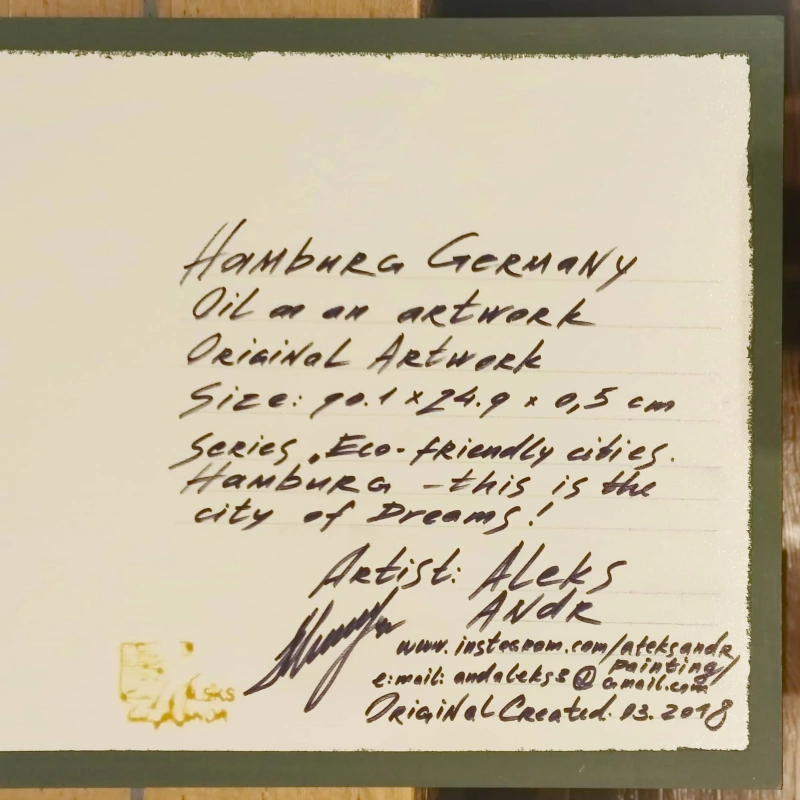 Hamburg Germany
Oil on an artwork
Original Artwork
Size: 90.1 x 24.9 x 0,5 cm
Series „Eco-friendly cities.
Hamburg - this is the
city of Dreams!
Artist: Aleks
Andr
www.instagram.com/aleksandr
painting/
e:mail: andaleks8@gmail.com
Original Created. 03. 2018